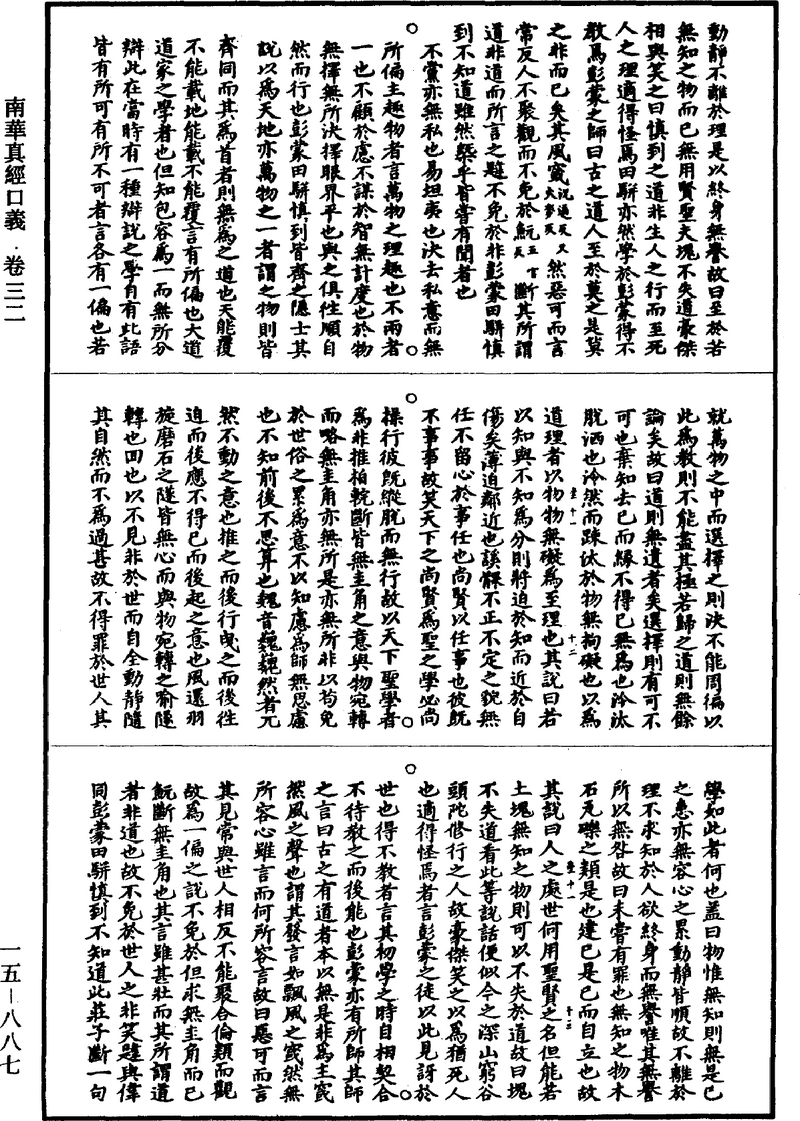 南華真經口義·卷三二
一五—八八七
動靜不離於理是以終身無譽故曰至於若
無知之物而已無用賢聖夫塊不失道豪傑
相與笑之曰慎到之道非生人之行而至死
人之理適得怪焉田駢亦然學於彭蒙得不
教焉彭蒙之師曰古之道人至於莫之是莫
之非而已矣其風窢然惡可而言
常反人不聚觀而不免於魭斷其所謂
道非道而所言之韙不免於非彭蒙田駢慎
到不知道雖然槩乎皆嘗有聞者也
不黨亦無私也易坦夷也決去私意而無
所偏主趣物者言萬物之理趣也不兩者
一也不顧於慮不謀於智無計度也於物
無擇無所決擇眼界平也與之俱往順自
然而行也彭蒙田駢慎到皆齊之隱士其
說以為天地亦萬物之一者謂之物則皆
齊同而其為首者則無為之道也天能覆
不能載地能載不能覆言有所偏也大道
道家之學者也但知包容為一而無所分
辯此在當時有一種辯說之學自有此語
皆有所可有所不可者言各有一偏也若
就萬物之中而選擇之則決不能周徧以
此為教則不能盡其極若歸之道則無餘
論矣故曰道則無遺者矣選擇則有可不
可也棄知去己而緣不得已無為也泠汰
脫洒也泠然而踈汰於物無拘礙也以為
道理者以物物無礙為至理也其說曰若
以知與不知為分則將迫於知而近於自
傷矣薄迫鄰近也謑髁不正不定之貌無
任不留心於事任也尚賢以任事也彼既
不事事故笑天下之尚賢為聖之學必尚
操行彼既縱脫而無行故以天下聖學者
為非推拍輐斷皆無圭角之意與物宛轉
而略無圭角亦無所是亦無所非以苟免
於世俗之累為意不以知慮為師無思慮
也不知前後不思算也魏音巍巍然者兀
然不動之意也推之而後行曳之而後往
迫而後應不得已而後起之意也風還羽
旋磨石之隧皆無心而與物宛轉之喻隧
轉也回也以不見非於世而自全動靜隨
其自然而不為過甚故不得罪於世人其
學如此者何也蓋曰物惟無知則無是己
之患亦無容心之累動靜皆順故不離於
理不求知於人欲終身而無譽唯其無譽
所以無咎故曰未嘗有罪也無知之物木
石瓦礫之類是也建己是己而自立也故
其說曰人之處世何用聖賢之名但能若
土塊無知之物則可以不失於道故曰塊
不失道看此等說話便似今之深山窮谷
頭陀修行之人故豪傑笑之以為猶死人
也適得怪焉者言彭蒙之徒以此見訝於
世也得不教者言其初學之時自相契合
不待教之而後能也彭蒙亦有所師其師
之言曰古之有道者本以無是非為主窢
然風之聲也謂其發言如飄風之窢然無
所容心雖言而何所容言故曰惡可而言
其見常與世人相反不能聚合倫類而觀
故為一偏之說不免於但求無圭角而已
魭斷無圭角也其言雖甚壯而其所謂道
者非道也故不免於世人之非笑韙與偉
同彭蒙田駢慎到不知道此莊子斷一句